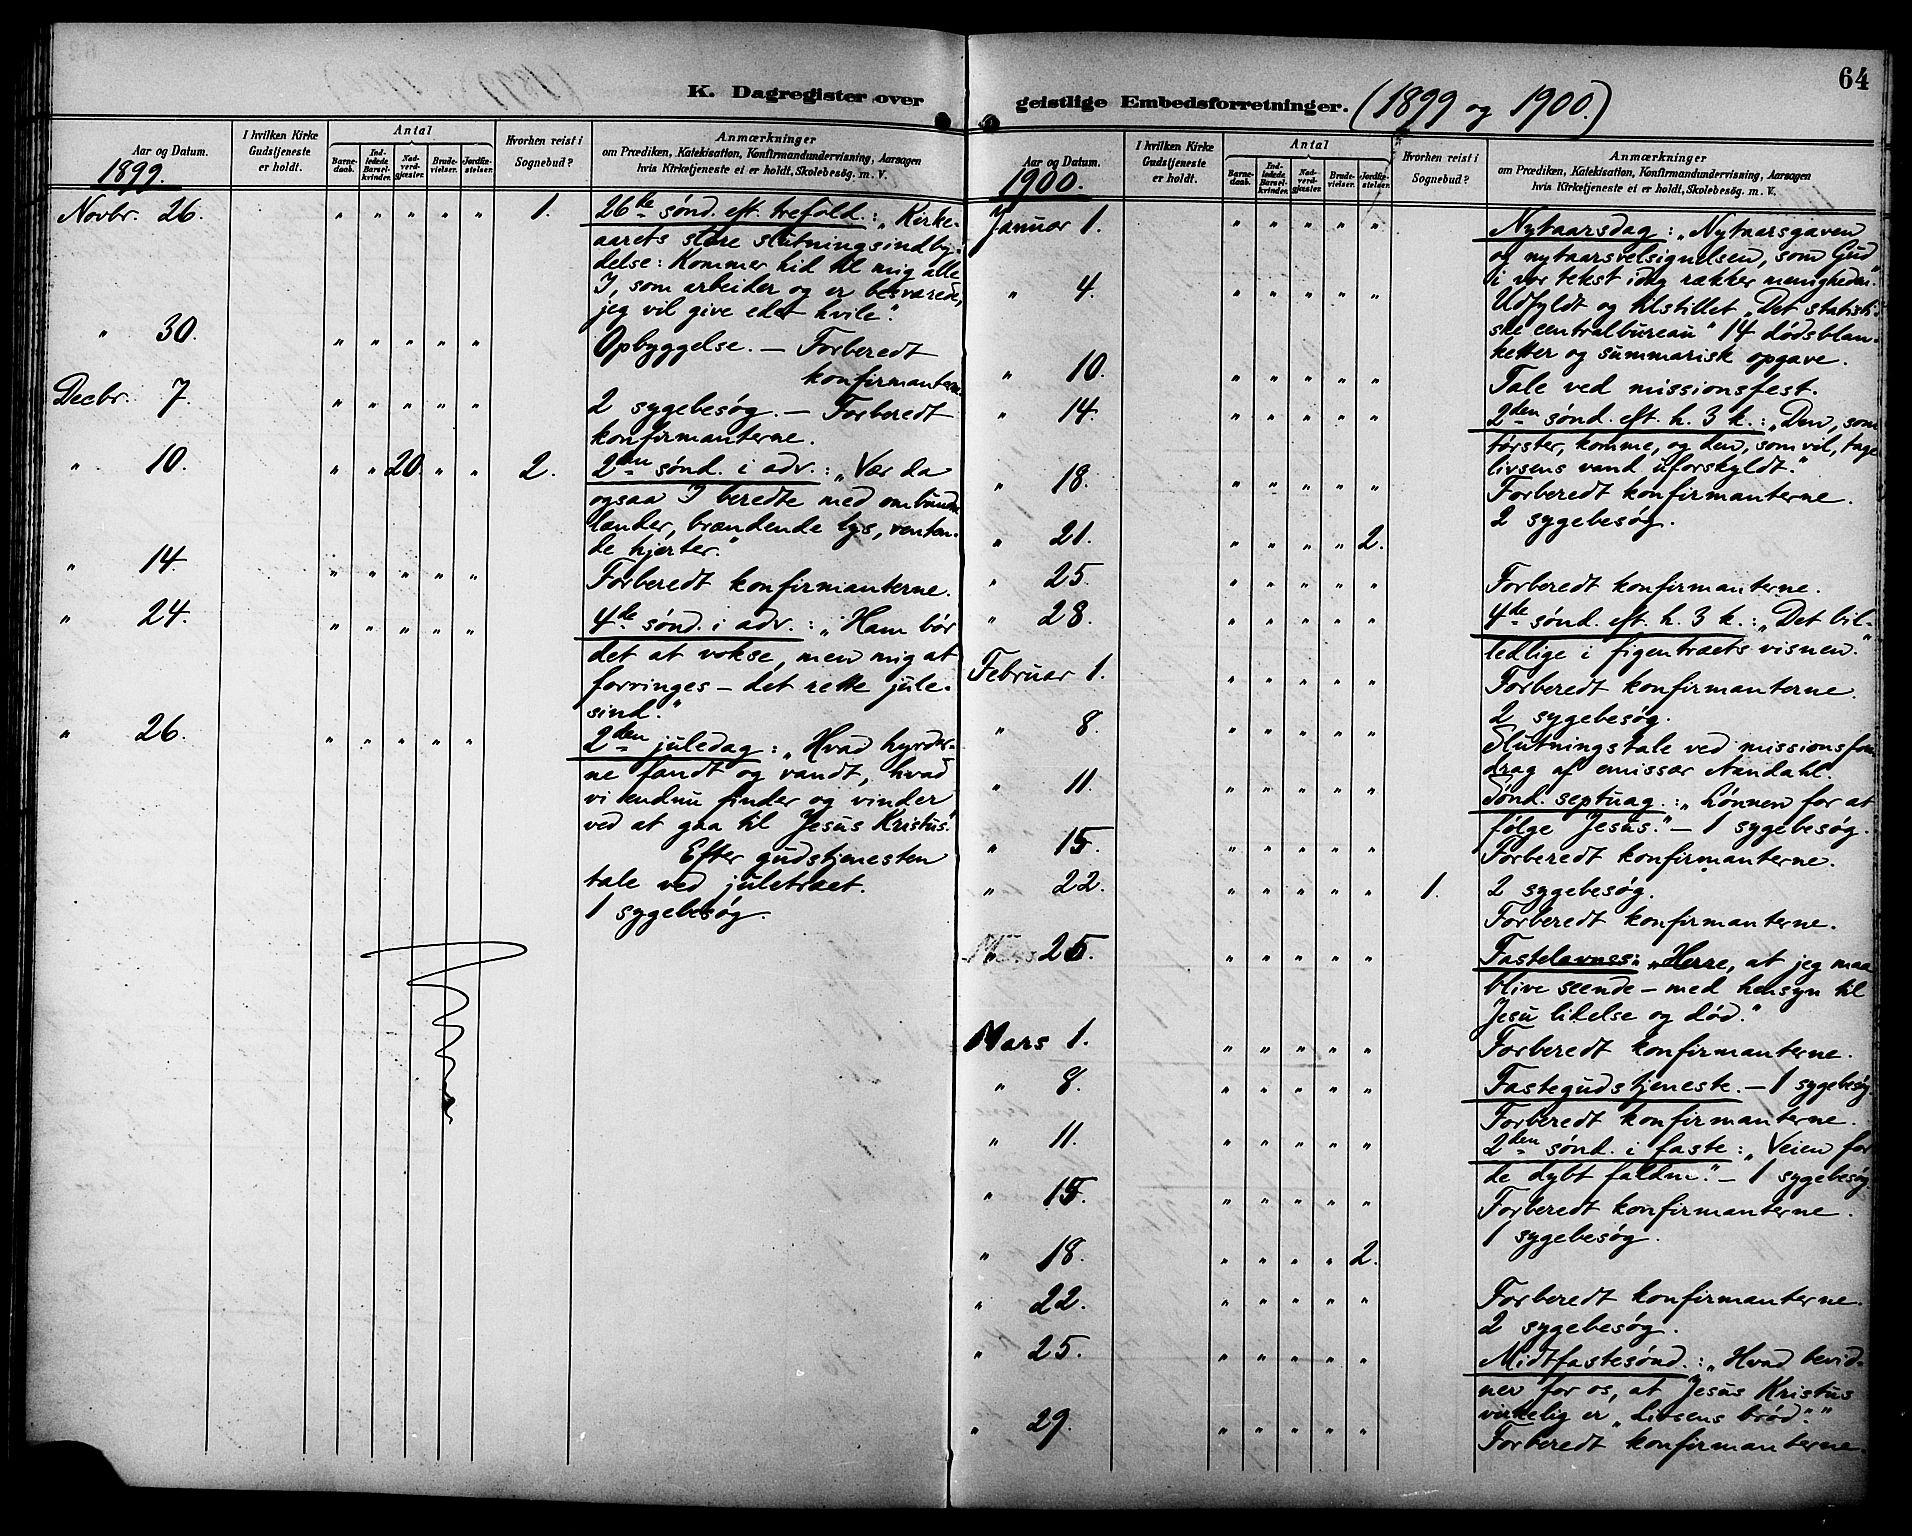 K. Dagregister over
Aar og Datum.
1899.
I hvilken Kirke Gudstjeneste er holdt.
Antal
Barnedaab.
Indledede Barselkvinder.
Nadverdgjæster.
Brudevielser.
Jordfæstelser.
Hvorhen reist i Sognebud?
Anmærkninger
om Prædiken, Katekisation, Konfirmandundervisning, Aarsagen
hvis Kirketjeneste ei er holdt, Skolebesøg. m. V.
Novbr. 26. " " " " " 1. 26de sønd. eft. trefold.: „Kirke-
aarets store slutningsindby-
delse: Kommer hid til mig alle
I, som arbeider og er besværede,
jeg vil give eder hvile".
" 30. " " " " " Opbyggelse. — Forberedt
konfirmanterne.
Decbr. 7. " " " " " 2 sygebesøg. — Forberedt
konfirmanterne.
" 10. " " 20. " " 2. 2den sønd. i adv.: „Vær da
ogsaa I beredte med ombundne
lænder, brændende lys, venten-
de hjerter."
" 14. " " " " " Forberedt konfirmanterne.
" 24. " " " " " 4de sønd. i adv.: „Ham bør
det at vokse, men mig at
forringes — det rette jule-
sind."
" 26. " " " " " 2den juledag: „Hvad hyrder-
ne fandt og vandt, hvad
vi endnu finder og vinder
ved at gaa til Jesus Kristus."
Efter gudstjenesten
tale ved juletræet.
1 sygebesøg.
geistlige Embedsforretninger. (1899 og 1900.)
64
Aar og Datum.
1900.
I hvilken Kirke Gudstjeneste er holdt.
Antal
Barnedaab.
Indledede Barselkvinder.
Nadverdgjæster.
Brudevielser.
Jordfæstelser.
Hvorhen reist i Sognebud?
Anmærkninger
om Prædiken, Katekisation, Konfirmandundervisning, Aarsagen
hvis Kirketjeneste ei er holdt, Skolebesøg. m. V.
Januar 1. " " " " " Nytaarsdag: „Nytaarsgaven
og nytaarsvelsignelsen, som Gud
i vor tekst idag rækker menigheden."
" 4. " " " " " Udfyldt og tilstillet „Det statisti-
ske centralbureau" 14 dødsblan-
ketter og summarisk opgave.
" 10. " " " " " Tale ved missionsfest.
" 14. " " " " " 2den sønd. eft. h. 3 k.: „Den, som
tørster, komme, og den, som vil, tage
livsens vand uforskyldt."
" 18. " " " " " Forberedt konfirmanterne.
2 sygebesøg.
" 21. " " " " 2.
" 25. " " " " " Forberedt konfirmanterne.
" 28. " " " " " 4de sønd. eft. h. 3 k.: „Det bil-
ledlige i figentræets visnen."
Februar 1. " " " " " Forberedt konfirmanterne.
2 sygebesøg.
" 8. " " " " " Slutningstale ved missionsfore-
drag af emissær Aandahl.
" 11. " " " " " Sønd. septuag.: „Lønnen for at
følge Jesus." — 1 sygebesøg.
" 15. " " " " " Forberedt konfirmanterne.
" 22. " " " " " 1. 2 sygebesøg.
Forberedt konfirmanterne.
" 25. " " " " " Fastelavnss: „Herre, at jeg maa
blive seende — med hensyn til
Jesu lidelse og død."
Mars 1. " " " " " Forberedt konfirmanterne.
" 8. " " " " " Fastegudstjeneste. — 1 sygebesøg.
Forberedt konfirmanterne.
" 11. " " " " " 2den sønd. i faste: „Veien for
de dybt faldne." — 1 sygebesøg.
" 15. " " " " " Forberedt konfirmanterne.
1 sygebesøg.
" 18. " " " " 2.
" 22. " " " " " Forberedt konfirmanterne.
2 sygebesøg.
" 25. " " " " " Midtfastesønd.: „Hvad bevid-
ner for os, at Jesus Kristus
virkelig er „Livsens brød"."
" 29. " " " " " Forberedt konfirmanterne.